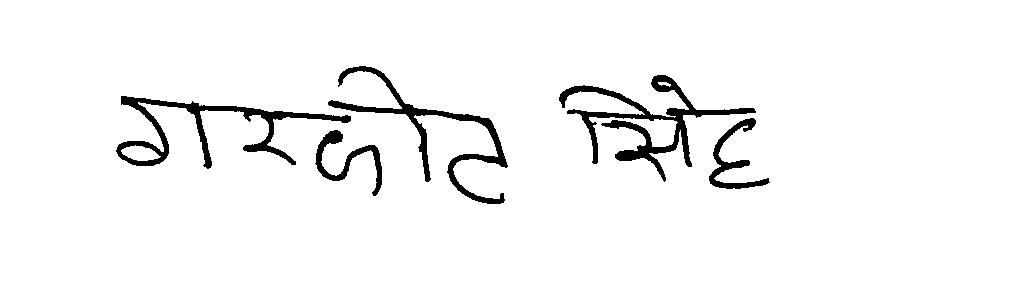 गरजीट सिंह